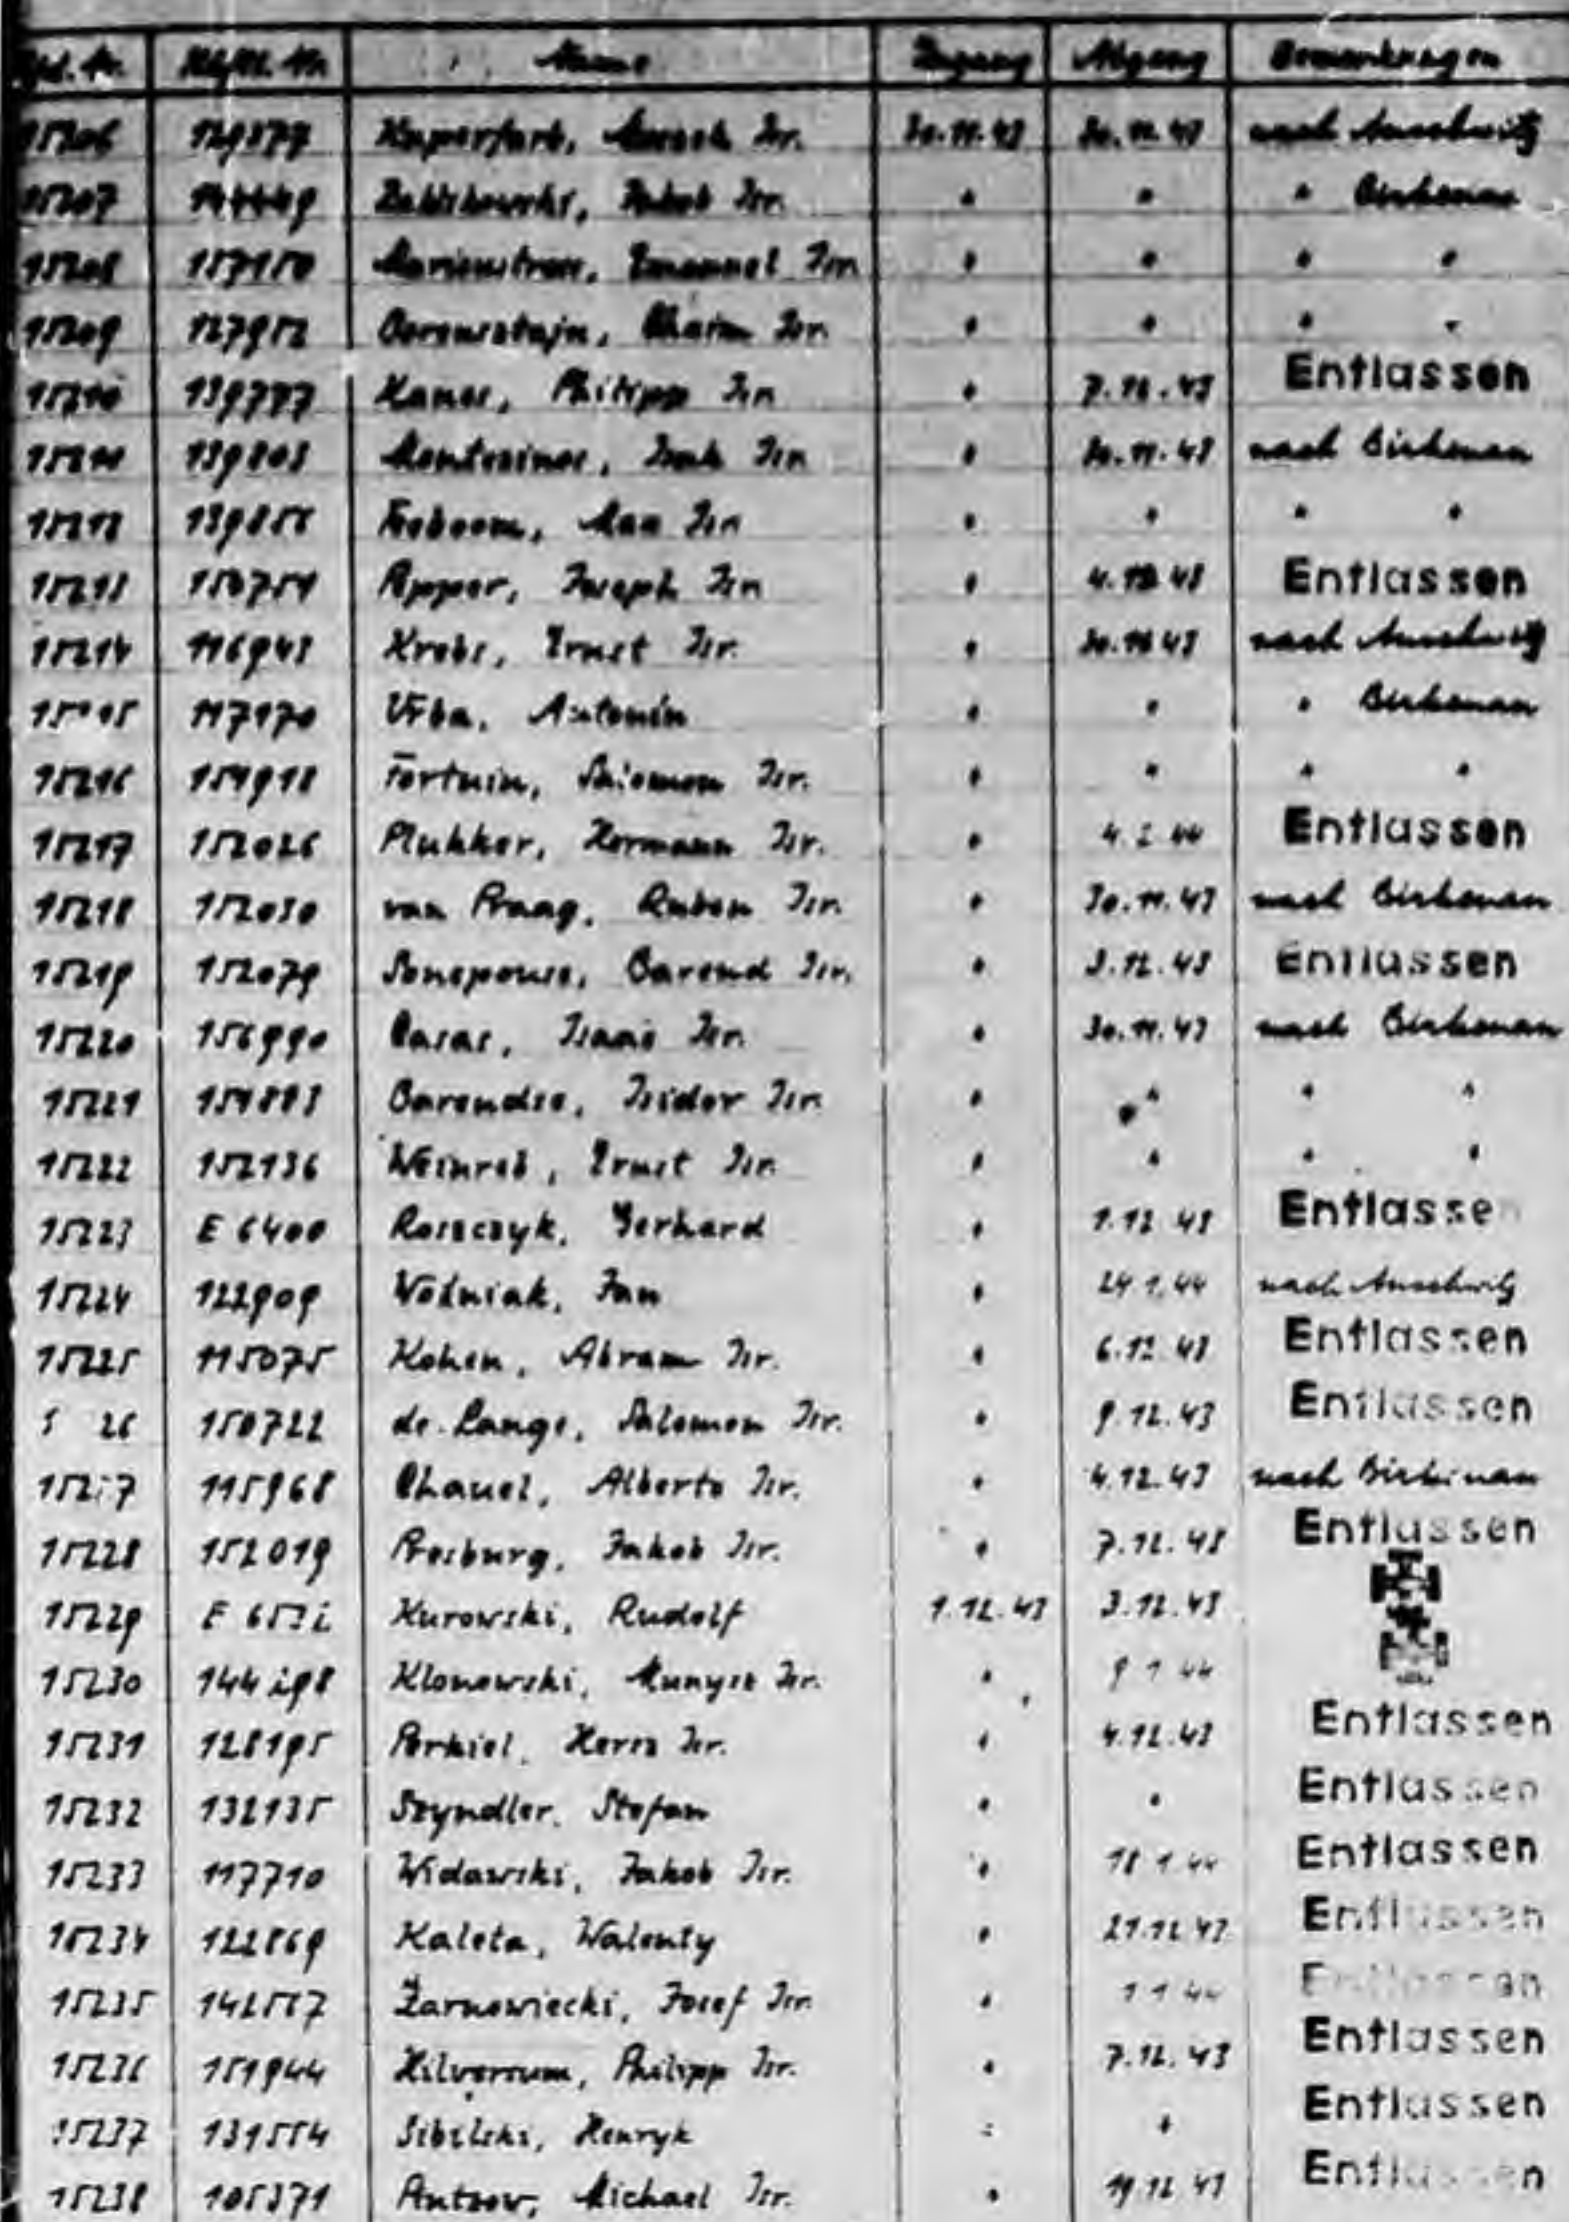 Lfd. Nr. Häftl. Nr. Name Zugang Abgang Bemerkungen
15206 129577 Kuperfarb, Isr. 30.11.43 30.11.43 nach Auschwitz
15207 144449 Jakob Isr. " " " Birkenau
15208 157150 Marienstrass, Emanuel Isr. " " " "
15209 127952 Berensztajn, Chaim Isr. " " " "
15210 139777 Kanes, Philipp Isr. " 7.12.43 Entlassen
15211 139803 Montezinos, Isak Isr. " 30.11.43 nach Birkenau
15212 Max Isr. " " " "
15213 150751 Apper, Joseph Isr. " 4.12.43 Entlassen
15214 116943 Krebs, Ernst Isr. " 30.11.43 nach Auschwitz
15 15 117170 Vrba, Antonín " " " Birkenau
15216 151918 Fortuin, Salomon Isr. " " " "
15217 152026 Plukker, Hermann Isr. " 4.2.44 Entlassen
15218 152030 van Praag, Ruben Isr. " 30.11.43 nach Birkenau
15219 152079 Barend Isr. " 3.12.43 Entlassen
15220 156990 Casas, Isaac Isr. " 30.11.43 nach Birkenau
15221 151883 Barendse, Isidor Isr. " " " "
15222 152136 Weinreb, Ernst Isr. " " " "
15223 E 6400 Roszczyk, Gerhard " 1.12.43 Entlasse
15224 122909 Woźniak, Jan " 24.1.44 nach Auschwitz
15225 115075 Kohen, Abram Isr. " 6.12.43 Entlassen
5 26 150722 de Lange, Salomon Isr. " 9.12.43 Entlassen
152 7 115968 Chauel, Alberto Isr. " 4.12.43 nach Birkenau
15228 152019 Presburg, Jakob Isr. " 7.12.43 Entlassen
15229 Kurowski, Rudolf 1.12.43 3.12.43
15230 Klonowski, Isr. " 9.1.44
15231 128195 Perkiel, Hersz Isr. " 4.12.43 Entlassen
15232 132135 Szyndler, Stefan " " Entlassen
15233 117710 Widawski, Jakob Isr. " 18.1.44 Entlassen
15234 122869 Kaleta, Walenty " 21.12.43 Entlassen
15235 142557 Żarnowiecki, Josef Isr. " 1.1.44 Entlassen
15236 151944 Hilversum, Philipp Isr. " 7.12.43 Entlassen
15237 131554 Sibilski, Henryk " " Entlassen
15238 105371 Michael Isr. " 19.12.43 Entlassen